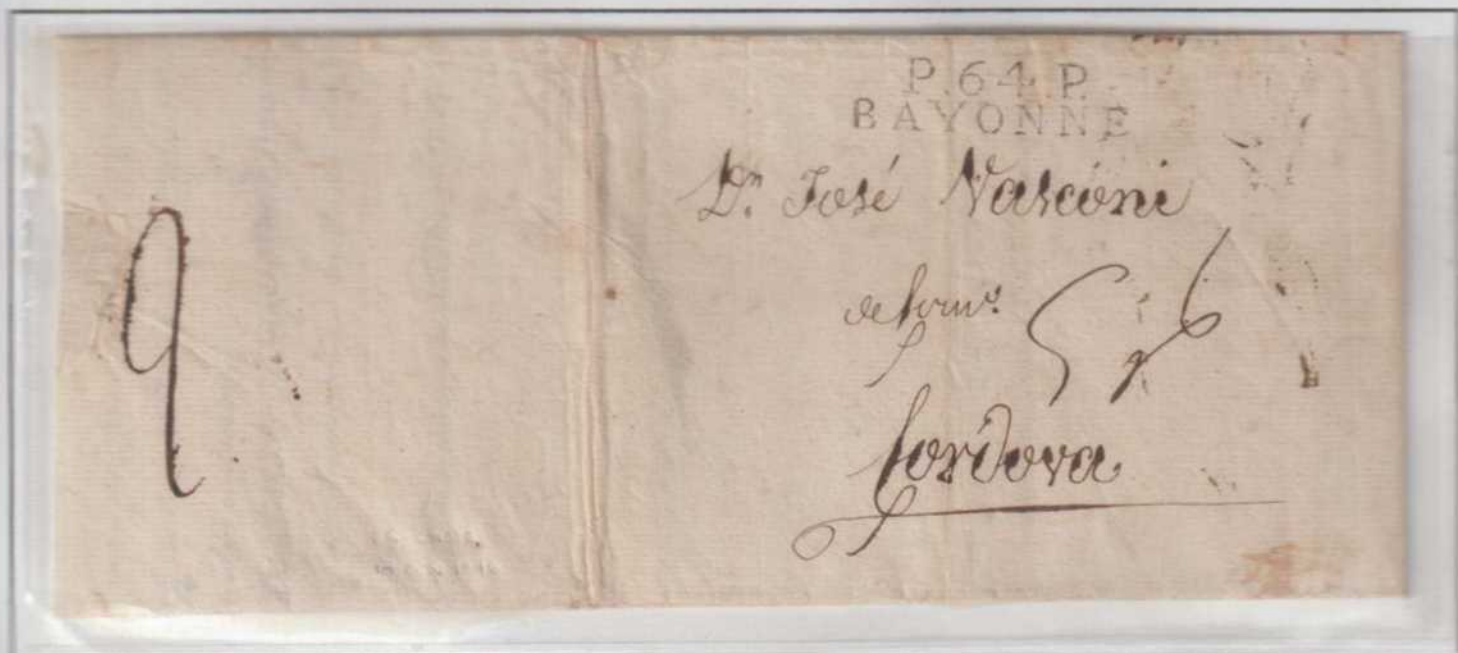 P.64.P.
BAYONNE
Dn. José Vasconi
Cordova
9